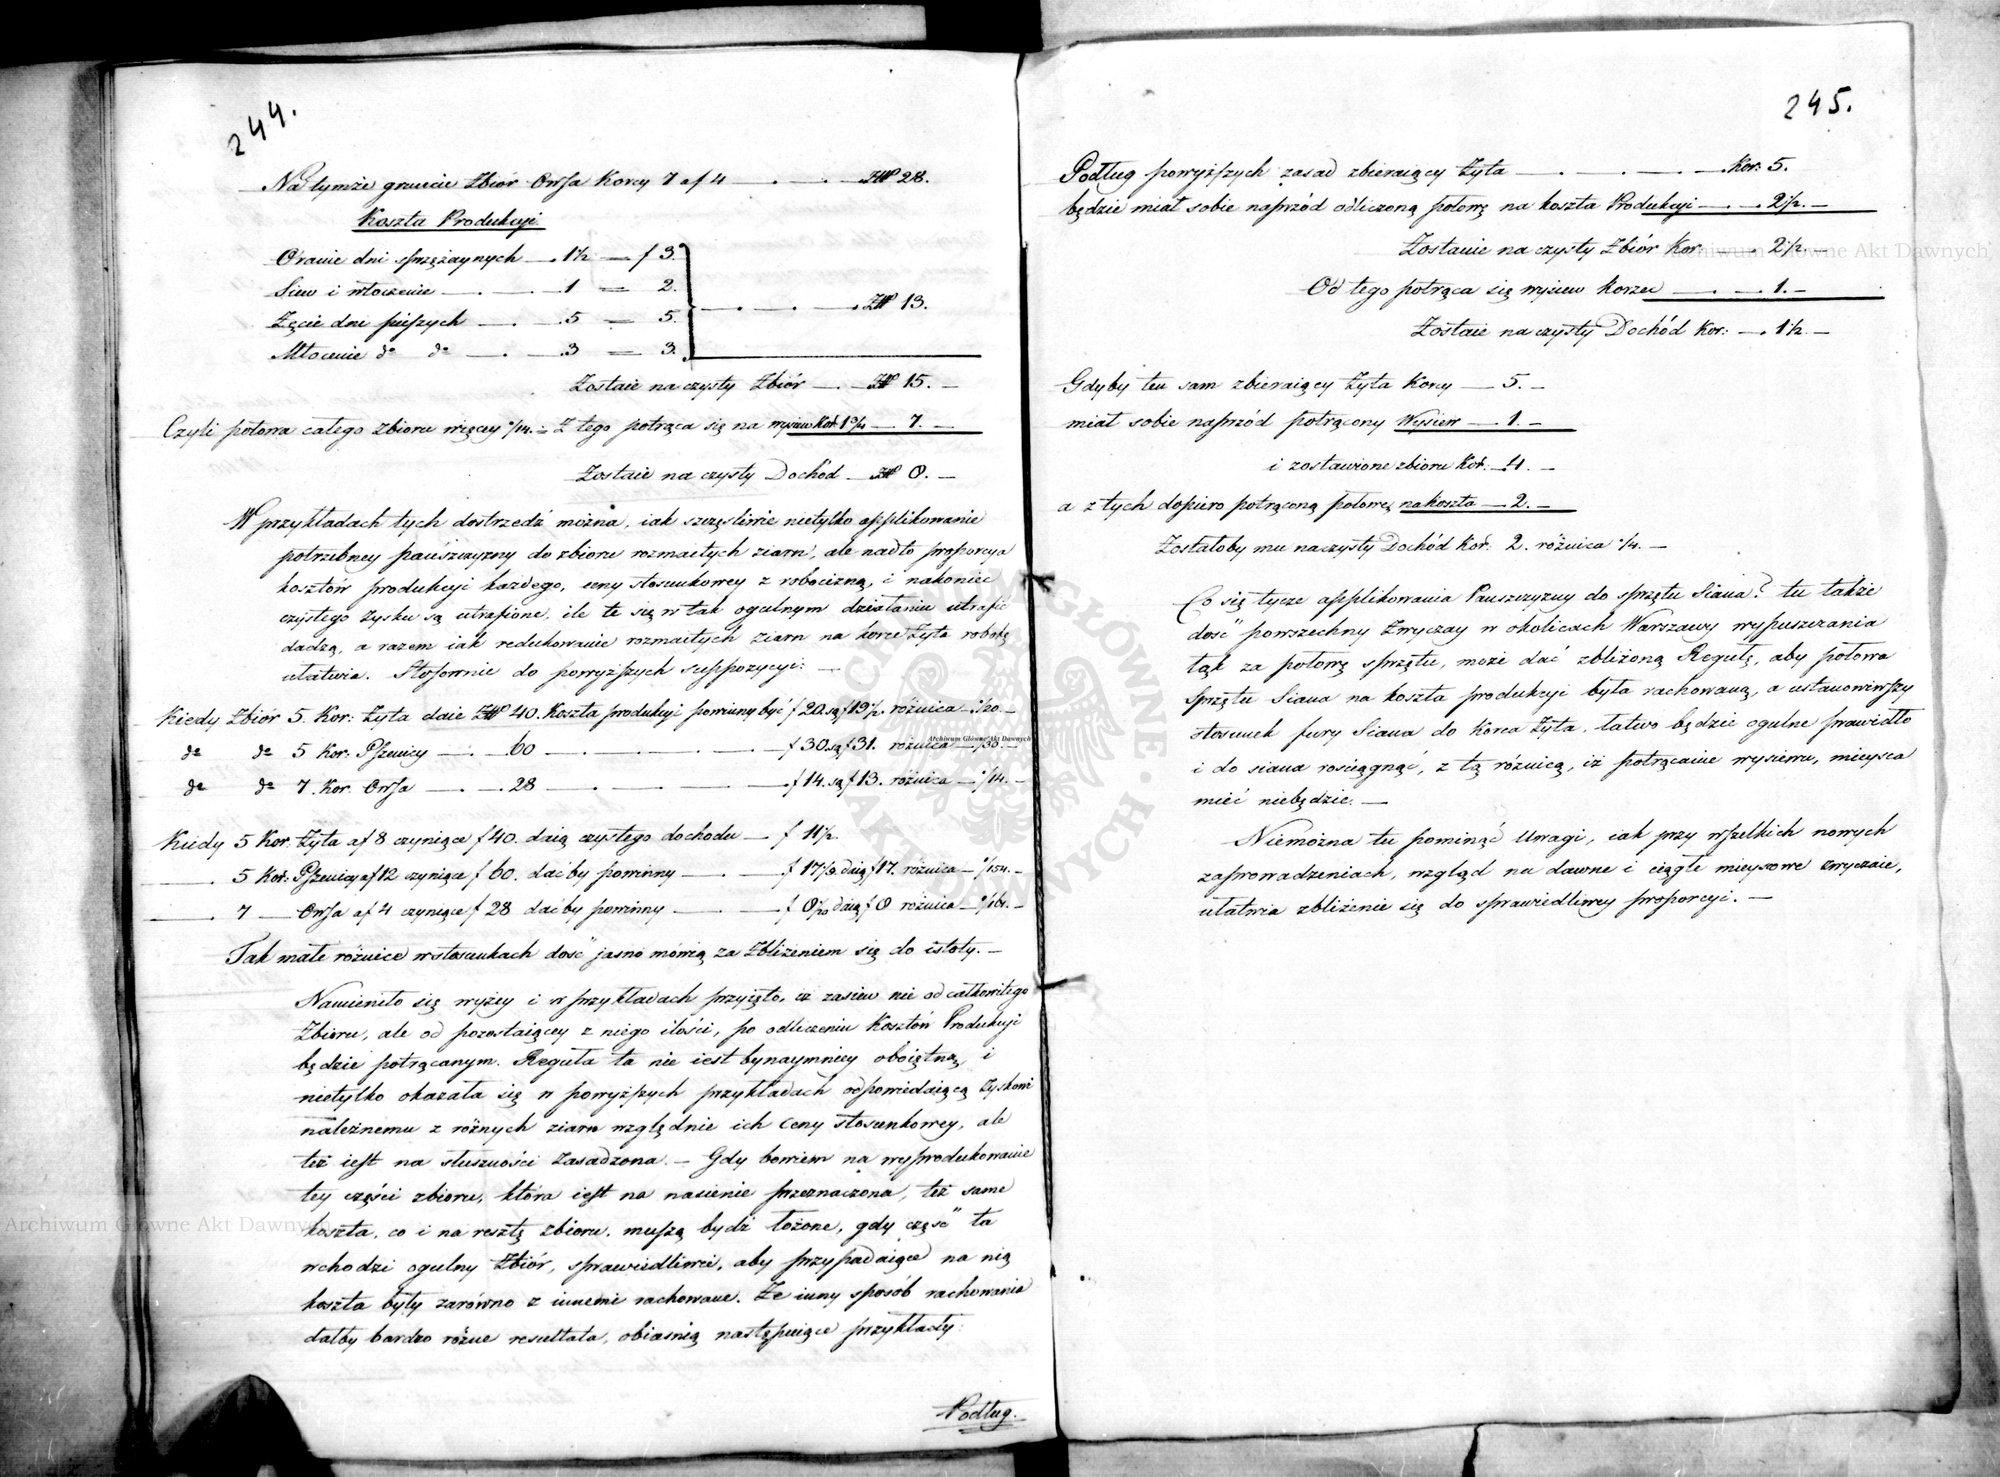 244.
Na tymże gruncie Zbiór Owsa Korcy 7 af 4 — . — . ZłP 28.
Koszta Produkcyi
Oranie dni sprzężaynych — . 1½ — f 3.
Siew i włoczenie — . — . 1 = 2.
Zęcie dni pieszych — . — . 5 = 5. — . — . ZłP 13.
Młocenie do do — . — . 3 = 3.
Zostaie na czysty Zbiór — . ZłP 15. —
Czyli połowa całego zbioru więcey 1/14. = Z tego potrąca się na wysiew Kor. 1¾ — 7. —
Zostaie na czysty Dochód — ZłP 8. —
W przykładach tych dostrzedź można, iak szczęśliwie nietylko applikowanie
potrzebney pańszczyzny do zbioru rozmaitych ziarn, ale nadto proporcya
kosztów produkcyi każdego, ceny stosunkowey z robocizną, i nakoniec
czystego zysku są utrafione, ile te się w tak ogulnym działaniu utrafić
dadzą, a razem iak redukowanie rozmaitych ziarn na korce Żyta robotę
ułatwia. Stosownie do powyższych suppozycyi: —
Kiedy Zbiór 5. Kor: Żyta daie ZłP 40. Koszta produkcyi powinny być f 20. są f 19½. różnica — 1/20. —
do do 5 Kor: Pszenicy — . 60 — . — . — f 30. są f 31. różnica — 1/30. —
do do 7. Kor. Owsa — . — 28 — . — . — f 14. są f 13. różnica — 1/14. —
Kiedy 5 Kor. Żyta af 8 czyniące f 40. daią czystego dochodu — f 11½.
— . 5 Kor: Pszenicy af 12 czyniące f 60. daćby powinny — . — f 17¼. daią f 17. różnica — 1/154. —
— . 7 — Owsa af 4 czyniące f 28 daćby powinny — . — f 8 1/20 daią f 8 różnica — 1/161. —
Tak małe różnice w stosunkach dość jasno mówią za Zbliżeniem się do istoty. —
Namieniło się wyżey i w przykładach przyięto, iż zasiew nie od całkowitego
Zbioru, ale od pozostaiącey z niego ilości, po odliczeniu Kosztów Produkcyi
będzie potrącanym. Reguła ta nie iest bynaymniey oboiętną, i
nietylko okazała się w powyższych przykładach odpowiedaiącą zyskowi
należnemu z różnych ziarn względnie ich Ceny stosunkowey, ale
też iest na słuszności Zasadzona. — Gdy bowiem na wyprodukowanie
tey części zbioru, która iest na nasienie przeznaczona, też same
koszta, co i na resztę zbioru, muszą bydź łożone, gdy część ta
wchodzi ogulny Zbiór, sprawiedliwie, aby przypadaiące na nią
koszta były zarówno z innemi rachowane. Że inny sposób rachowania
dałby bardzo różne resultata, obiaśnią następuiące przykłady:
Podług.
245.
Podług powyższych zasad zbieraiący Żyta — . — . — . Kor: 5.
będzie miał sobie naprzód odliczoną połowę na koszta Produkcyi — . — 2½. —
Zostanie na czysty Zbiór Kor. — . — 2½. —
Od tego potrąca się wysiew korzec — . — 1. —
Zostaie na czysty Dochód Kor: — . 1½ —
Gdyby ten sam zbieraiący Żyta Korcy — 5. —
miał sobie naprzód potrącony Wysiew — 1. —
i zostawione zbioru Kor: — 4. —
a z tych dopiero potrąconą połowę na koszta — 2. —
Zostałoby mu na czysty Dochód Kor: 2. różnica ¼. —
Co się tycze applikowania Pauszczyzny do sprzętu Siana? tu także
dość powszechny Zwyczay w okolicach Warszawy wypuszczania
łąk za połowę sprzętu, może dać zbliżoną Regułę, aby połowa
Sprzętu Siana na koszta produkcyi była rachowaną, a ustanowiwszy
stosunek fury Siana do Korca Żyta, łatwo będzie ogulne prawidło
i do siana rosciągnąć, z tą różnicą, iż potrącanie wysiewu, mieysca
mieć niebędzie. —
Niemożna tu pominąć Uwagi, iak przy wszelkich nowych
zaprowadzeniach, wzgląd na dawne i ciągłe mieyscowe zwyczaie,
ułatwia zbliżenie się do sprawiedliwey proporcyi. —
Archiwum Główne Akt Dawnych
Archiwum Główne Akt Dawnych
Archiwum Główne Akt Dawnych